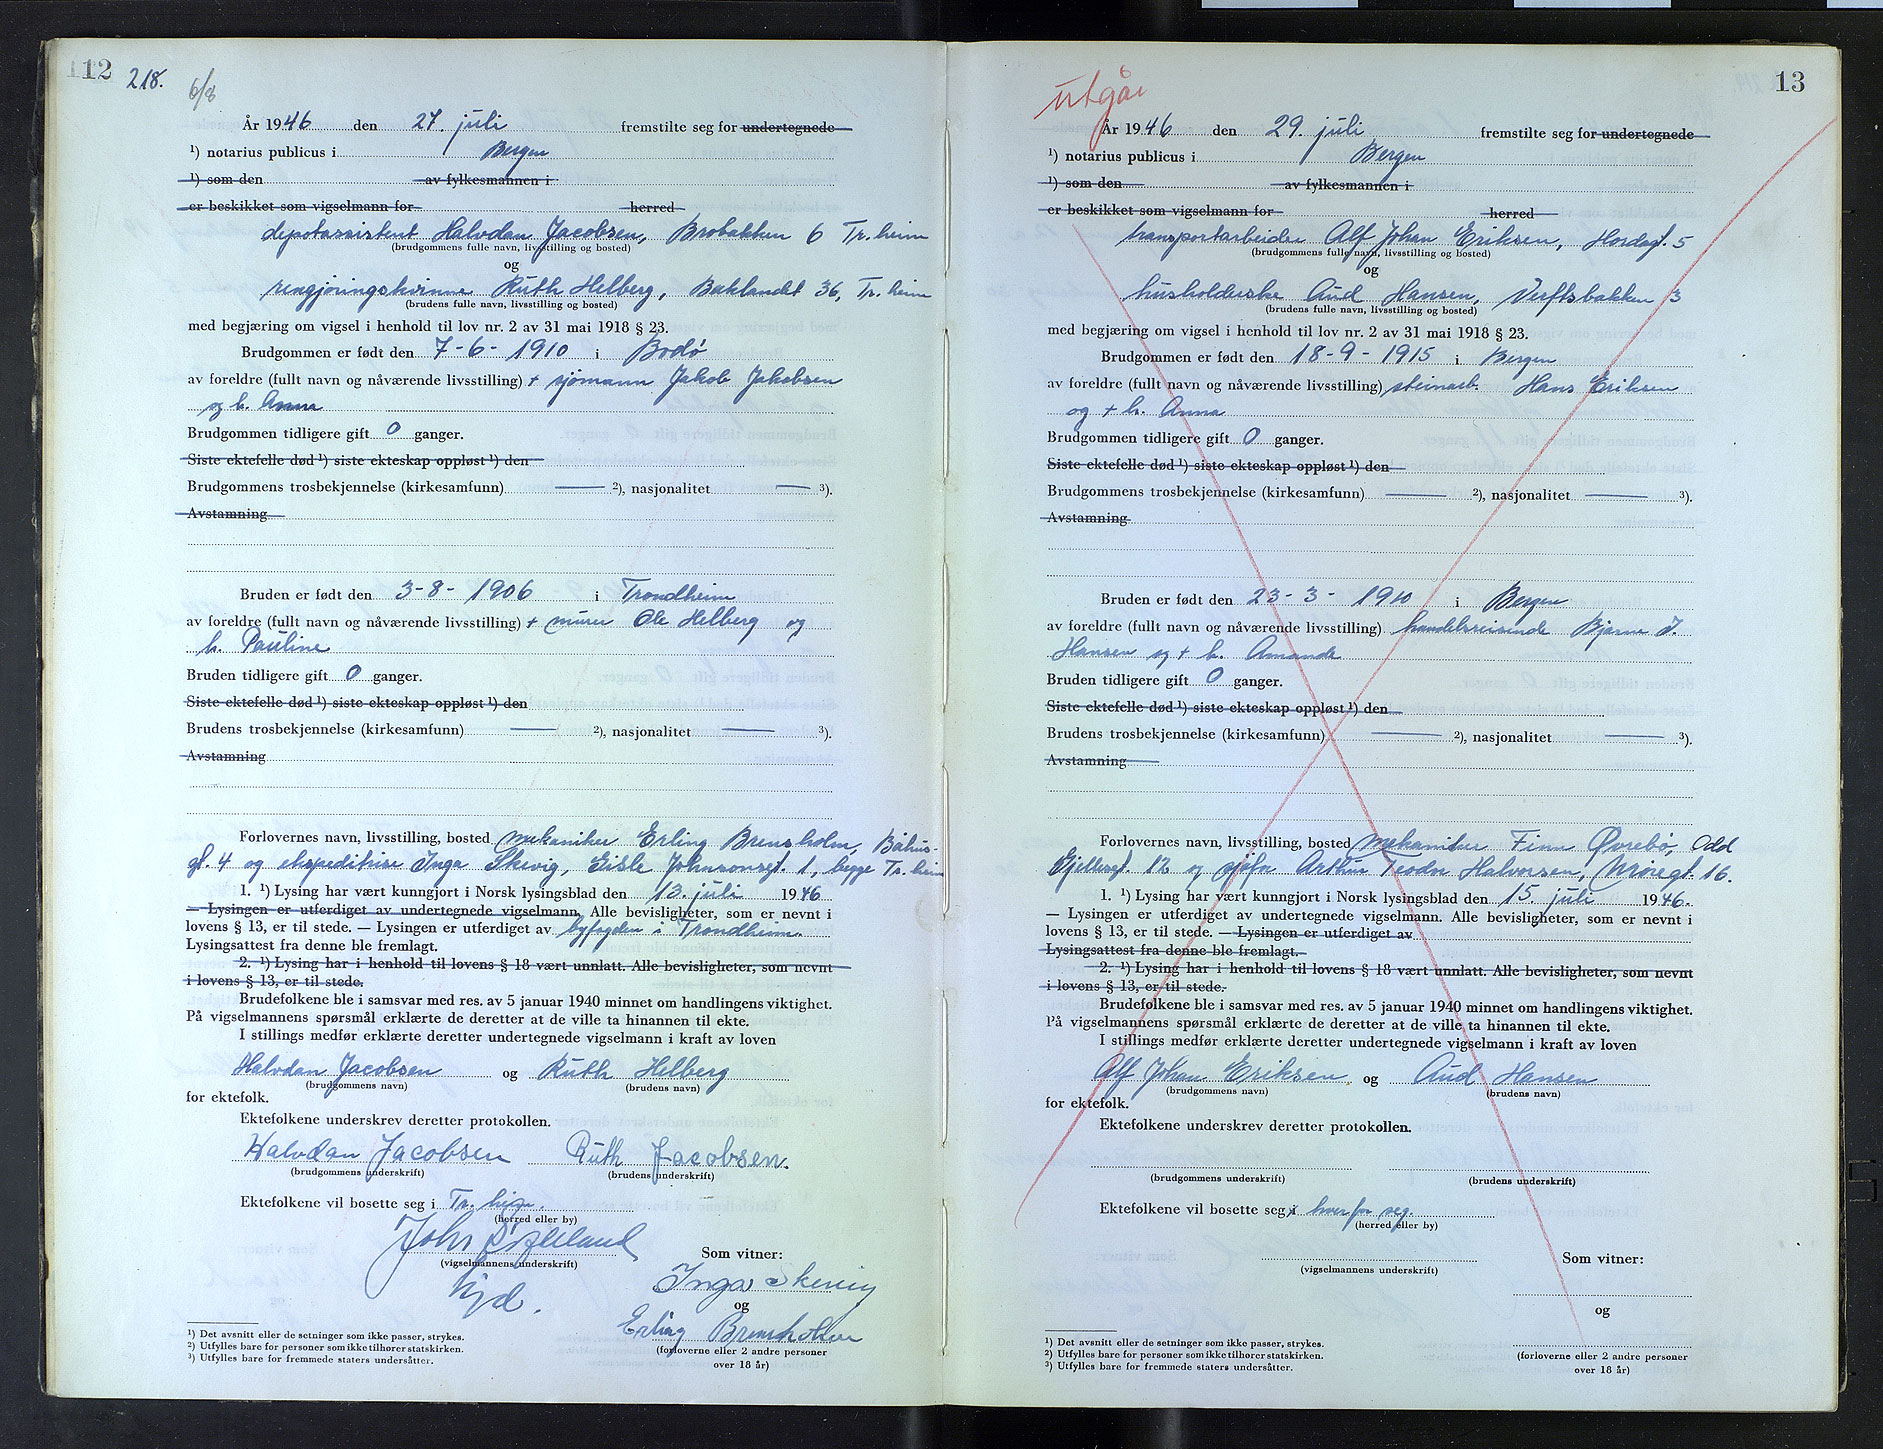 112 218. 6/8
År 1946 den 27. juli fremstilte seg for undertegnede
¹) notarius publicus i Bergen
¹) som den av fylkesmannen i
er beskikket som vigselmann for herred
depotassistent Halvdan Jacobsen, Brobakken 6 Tr.heim
(brudgommens fulle navn, livsstilling og bosted)
og
rengjøringskvinne Ruth Helberg, Baklandet 36, Tr.heim
(brudens fulle navn, livsstilling og bosted)
med begjæring om vigsel i henhold til lov nr. 2 av 31 mai 1918 § 23.
Brudgommen er født den 7-6-1910 i Bodø
av foreldre (fullt navn og nåværende livsstilling) + sjømann Jakob Jakobsen
og h. Anna
Brudgommen tidligere gift 0 ganger.
Siste ektefelle død ¹) siste ekteskap oppløst ¹) den
Brudgommens trosbekjennelse (kirkesamfunn) — ²), nasjonalitet — ³).
Avstamning
Bruden er født den 3-8-1906 i Trondheim
av foreldre (fullt navn og nåværende livsstilling) + murer Ole Helberg og
h. Pauline
Bruden tidligere gift 0 ganger.
Siste ektefelle død ¹) siste ekteskap oppløst ¹) den
Brudens trosbekjennelse (kirkesamfunn) — ²), nasjonalitet — ³).
Avstamning
Forlovernes navn, livsstilling, bosted mekaniker Erling Brensholm, Båhus-
gt. 4 og ekspeditrise Inga Skevig, Gisle Johnsonsgt. 1, begge Tr.heim
1. ¹) Lysing har vært kunngjort i Norsk lysingsblad den 13. juli 1946
— Lysingen er utferdiget av undertegnede vigselmann. Alle bevisligheter, som er nevnt i
lovens § 13, er til stede. — Lysingen er utferdiget av byfogden i Trondheim.
Lysingsattest fra denne ble fremlagt.
2. ¹) Lysing har i henhold til lovens § 18 vært unnlatt. Alle bevisligheter, som nevnt
i lovens § 13, er til stede.
Brudefolkene ble i samsvar med res. av 5 januar 1940 minnet om handlingens viktighet.
På vigselmannens spørsmål erklærte de deretter at de ville ta hinannen til ekte.
I stillings medfør erklærte deretter undertegnede vigselmann i kraft av loven
Halvdan Jacobsen og Ruth Helberg
(brudgommens navn) (brudens navn)
for ektefolk.
Ektefolkene underskrev deretter protokollen.
Halvdan Jacobsen Ruth Jacobsen.
(brudgommens underskrift) (brudens underskrift)
Ektefolkene vil bosette seg i Tr. heim.
(herred eller by)
John
(vigselmannens underskrift)
Som vitner:
Inga Skevig
og
Erling Brensholm
(forloverne eller 2 andre personer
over 18 år)
¹) Det avsnitt eller de setninger som ikke passer, strykes.
²) Utfylles bare for personer som ikke tilhører statskirken.
³) Utfylles bare for fremmede staters undersåtter.
utgår 13
År 1946 den 29. juli fremstilte seg for undertegnede
¹) notarius publicus i Bergen
¹) som den av fylkesmannen i
er beskikket som vigselmann for herred
transportarbeider Alf Johan Eriksen, Hordagt. 5
(brudgommens fulle navn, livsstilling og bosted)
og
husholderske Aud Hansen, Verftsbakken 3
(brudens fulle navn, livsstilling og bosted)
med begjæring om vigsel i henhold til lov nr. 2 av 31 mai 1918 § 23.
Brudgommen er født den 18-9-1915 i Bergen
av foreldre (fullt navn og nåværende livsstilling) steinarb. Hans Eriksen
og + h. Anna
Brudgommen tidligere gift 0 ganger.
Siste ektefelle død ¹) siste ekteskap oppløst ¹) den
Brudgommens trosbekjennelse (kirkesamfunn) — ²), nasjonalitet — ³).
Avstamning
Bruden er født den 23-3-1910 i Bergen
av foreldre (fullt navn og nåværende livsstilling) handelsreisende Bjarne J.
Hansen og + h. Amanda
Bruden tidligere gift 0 ganger.
Siste ektefelle død ¹) siste ekteskap oppløst ¹) den
Brudens trosbekjennelse (kirkesamfunn) — ²), nasjonalitet — ³).
Avstamning
Forlovernes navn, livsstilling, bosted mekaniker Finn Øvrebø, Odd
Gjellesgt. 12 og sjåfør Arthur Teodor Halvorsen, Møregt. 16.
1. ¹) Lysing har vært kunngjort i Norsk lysingsblad den 15 juli 1946.
— Lysingen er utferdiget av undertegnede vigselmann. Alle bevisligheter, som er nevnt i
lovens § 13, er til stede. — Lysingen er utferdiget av
Lysingsattest fra denne ble fremlagt.
2. ¹) Lysing har i henhold til lovens § 18 vært unnlatt. Alle bevisligheter, som nevnt
i lovens § 13, er til stede.
Brudefolkene ble i samsvar med res. av 5 januar 1940 minnet om handlingens viktighet.
På vigselmannens spørsmål erklærte de deretter at de ville ta hinannen til ekte.
I stillings medfør erklærte deretter undertegnede vigselmann i kraft av loven
Alf Johan Eriksen og Aud Hansen
(brudgommens navn) (brudens navn)
for ektefolk.
Ektefolkene underskrev deretter protokollen.
(brudgommens underskrift) (brudens underskrift)
Ektefolkene vil bosette seg i hver for seg.
(herred eller by)
(vigselmannens underskrift)
Som vitner:
og
(forloverne eller 2 andre personer
over 18 år)
¹) Det avsnitt eller de setninger som ikke passer, strykes.
²) Utfylles bare for personer som ikke tilhører statskirken.
³) Utfylles bare for fremmede staters undersåtter.